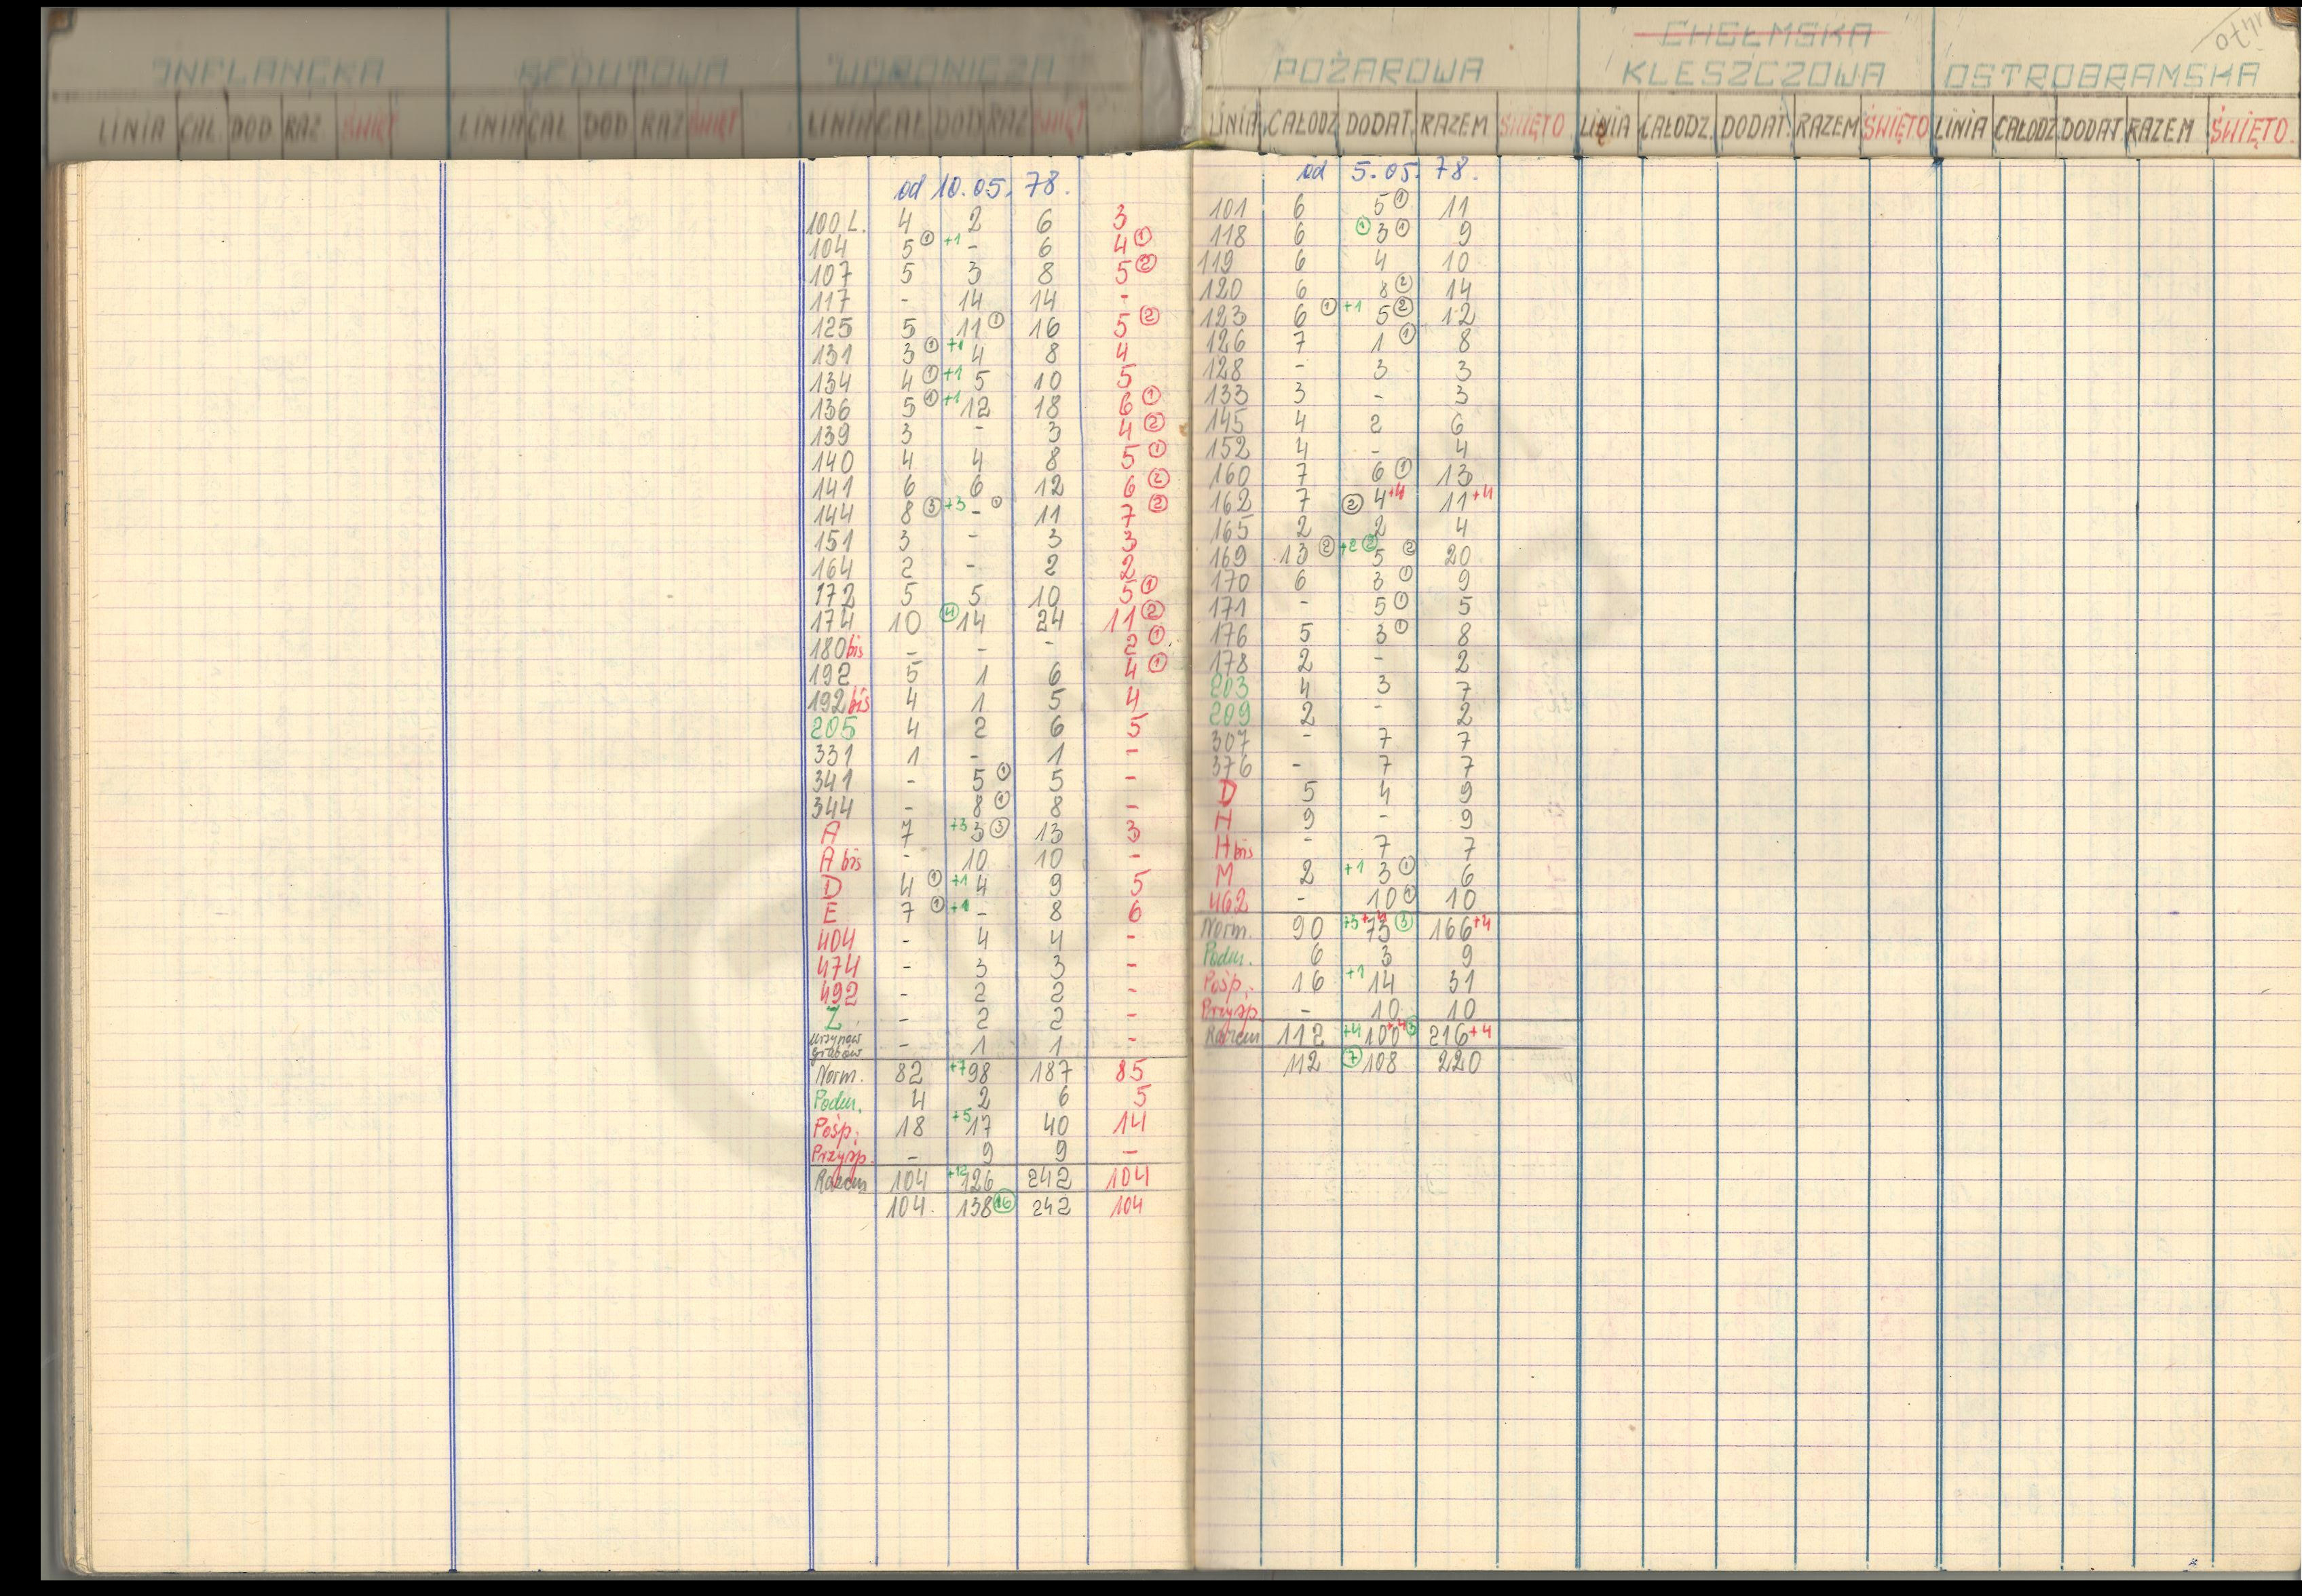 INFLANCKA REDUTOWA WORONICZA
LINIA CAŁ. DOD RAZ ŚWIĘT LINIA CAŁ DOD RAZ ŚWIĘT LINIA CAŁ DOD RAZ ŚWIĘT
od 10.05.78.
100 L. 4 2 6 3
104 5 ① +1 - 6 4 ①
107 5 3 8 5 ②
117 - 14 14 -
125 5 11 ① 16 5 ②
131 3 ① +1 4 8 4
134 4 ① +1 5 10 5
136 5 ① +1 12 18 6 ①
139 3 - 3 4 ②
140 4 4 8 5 ①
141 6 6 12 6 ②
144 8 ③ +3 - ① 11 7 ②
151 3 - 3 3
164 2 - 2 2
172 5 5 10 5 ①
174 10 ④ 14 24 11 ②
180 bis - - - 2 ①
192 5 1 6 4 ①
192 bis 4 1 5 4
205 4 2 6 5
331 1 - 1 -
341 - 5 ① 5 -
344 - 8 ① 8 -
A 7 +3 3 ③ 13 3
A bis - 10 10 -
D 4 ① +1 4 9 5
E 7 ① +1 - 8 6
404 - 4 4 -
474 - 3 3 -
492 - 2 2 -
Z - 2 2 -
Ursynów
Grabów - 1 1 -
Norm. 82 +7 98 187 85
Podm. 4 2 6 5
Pośp. 18 +5 17 40 14
Przysp. - 9 9 -
Razem 104 +12 126 242 104
104. 138 ⑯ 242 104
otwr.
CHEŁMSKA
POŻAROWA KLESZCZOWA OSTROBRAMSKA
LINIA CAŁODZ DODAT. RAZEM ŚWIĘTO LINIA CAŁODZ. DODAT. RAZEM ŚWIĘTO LINIA CAŁODZ DODAT RAZEM ŚWIĘTO.
od 5.05.78.
101 6 5 ① 11
118 6 ① 3 ① 9
119 6 4 10
120 6 8 ② 14
123 6 ① +1 5 ② 12
126 7 1 ① 8
128 - 3 3
133 3 - 3
145 4 2 6
152 4 - 4
160 7 6 ① 13
162 7 ② 4 +4 11 +4
165 2 2 4
169 13 ② +2 ② 5 ② 20
170 6 3 ① 9
171 - 5 ① 5
176 5 3 ① 8
178 2 - 2
203 4 3 7
209 2 - 2
307 - 7 7
376 - 7 7
D 5 4 9
H 9 - 9
H bis - 7 7
M 2 +1 3 ① 6
462 - 10 ① 10
Norm. 90 +3 +4 73 ③ 166 +4
Podm. 6 3 9
Pośp. 16 +1 14 31
Przysp. - 10 10
Razem 112 +4 100 +4 ③ 216 +4
112 ⑦ 108 220